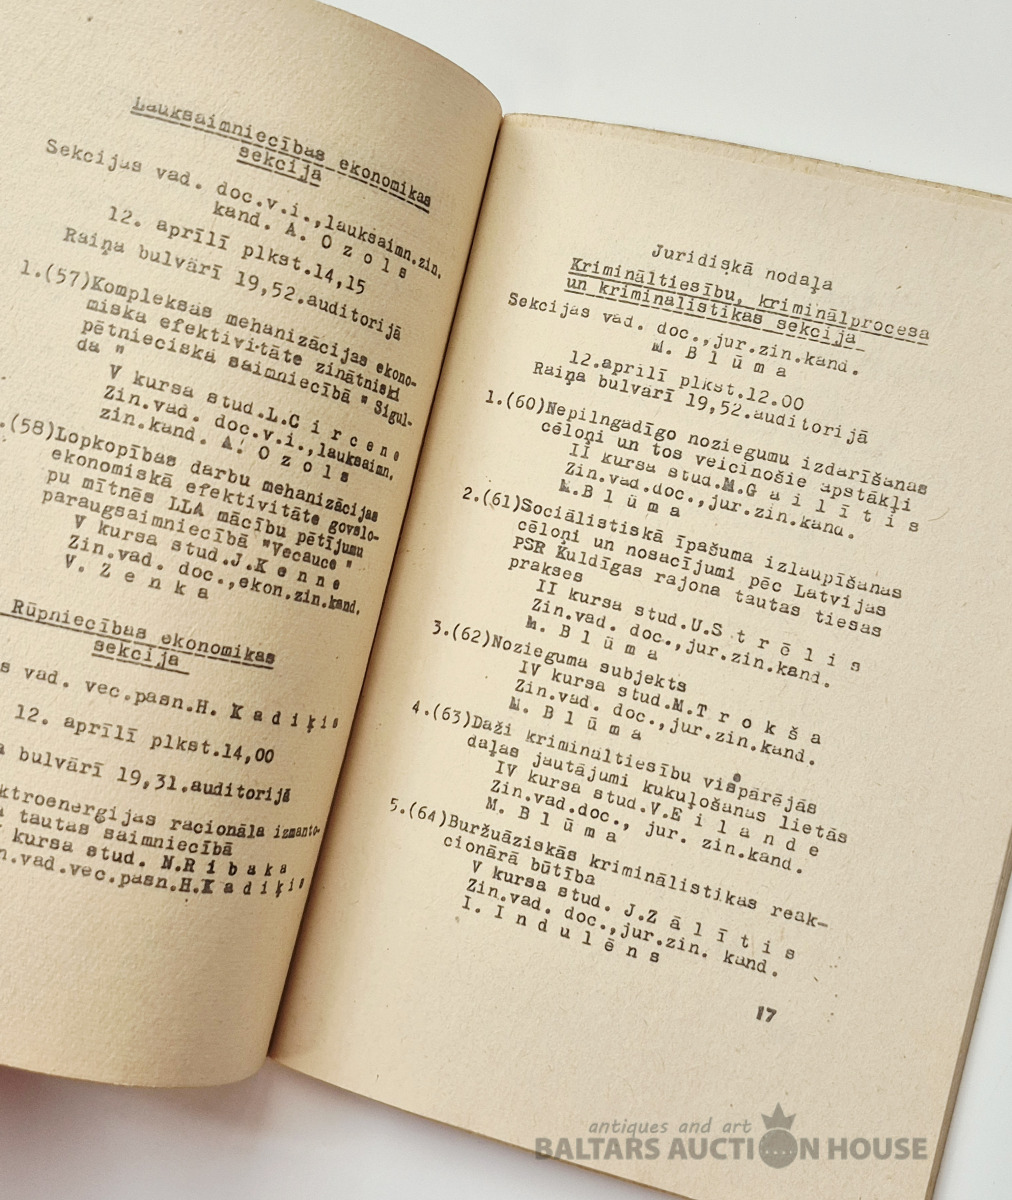 Lauksaimniecības ekonomikas
sekcija
Sekcijas vad. doc.v.i.,lauksaimn.zin.
kand. A. O z o l s
12. aprīlī plkst.14,15
Raiņa bulvārī 19,52.auditorijā
1.(57)Kompleksas mehanizācijas ekono-
miska efektivitāte zinātniski
pētnieciskā saimniecībā " Sigul-
da "
V kursa stud.L.C i r c e n e
Zin.vad. doc.v.i.,lauksaimn.
zin.kand. A. O z o l s
.(58)Lopkopības darbu mehanizācijas
ekonomiskā efektivitāte govslo-
pu mītnēs LLA mācību pētījumu
paraugsaimniecībā "Vecauce "
V kursa stud.J.K e n n e
Zin.vad. doc.,ekon.zin.kand.
V. Z e n k a
Rūpniecības ekonomikas
sekcija
s vad. vec.pasn.H. K a d i ķ i s
12. aprīlī plkst.14,00
a bulvārī 19,31.auditorijā
ktroenergijas racionāla izmanto-
tautas saimniecībā
kursa stud. N.R i b a k a
n.vad.vec.pasn.H.K a d i ķ i s
Juridiskā nodaļa
Krimināltiesību, kriminālprocesa
un kriminālistikas sekcija
Sekcijas vad. doc.,jur.zin.kand.
M. B l ū m a
12.aprīlī plkst.12.00
Raiņa bulvārī 19,52.auditorijā
1.(60)Nepilngadīgo noziegumu izdarīšanas
cēloņi un tos veicinošie apstākļi
II kursa stud.M.G a i l ī t i s
Zin.vad.doc.,jur.zin.kand.
M.B l ū m a
2.(61)Sociālistiskā īpašuma izlaupīšanas
cēloņi un nosacījumi pēc Latvijas
PSR Kuldīgas rajona tautas tiesas
prakses
II kursa stud.U.S t r ō l i s
Zin.vad. doc.,jur.zin.kand.
M. B l ū m a
3.(62)Nozieguma subjekts
IV kursa stud.M.T r o k š a
Zin.vad. doc.,jur.zin.kand.
M. B l ū m a
4.(63)Daži krimināltiesību vispārējās
daļas jautājumi kukuļošanas lietās
IV kursa stud.V.E i l a n d e
Zin.vad.doc., jur. zin.kand.
M. B l ū m a
5.(64)Buržuāziskās kriminālistikas reak-
cionārā būtība
V kursa stud. J.Z ā l ī t i s
Zin.vad. doc.,jur.zin. kand.
I. I n d u l ē n s
17
antiques and art
BALTARS AUCTION HOUSE